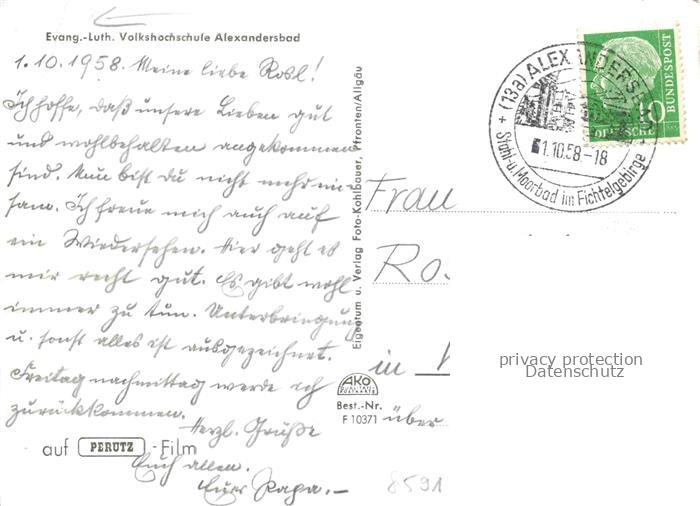 Evang.-Luth. Volkshochschule Alexandersbad
1.10.1958. Meine liebe Rosl!
Ich hoffe, daß unsere Lieben gut
und wohlbehalten angekommen
sind. Nun bist du nicht mehr ein-
sam. Ich freue mich auch auf
ein Wiedersehen. Hier geht es
mir recht gut. Es gibt wohl
immer zu tun. Unterbringung
u. sonst alles ist ausgezeichnet.
Freitag nachmittag werde ich
zurückkommen.
Herzl. Grüße
Euch allen.
Euer Papa.-
auf PERUTZ-Film
Eigentum u. Verlag Foto-Kohlbauer, Pfronten/Allgäu
AKO
Best.-Nr.
F 10371
+ (13a) ALEXANDERSBAD +
1.10.58-18
Stahl-u. Moorbad im Fichtelgebirge
10
DEUTSCHE
BUNDESPOST
Frau
Ro
in
über
privacy protection
Datenschutz
8591